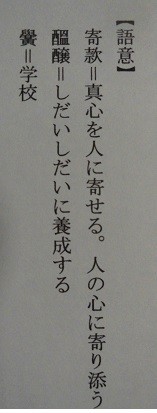 【語意】
寄款＝真心を人に寄せる。人の心に寄り添う
醞醸＝しだいしだいに養成する
黌＝学校